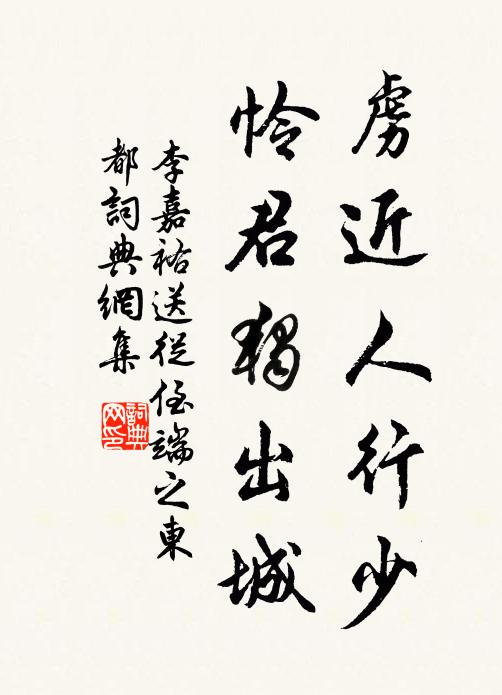 虜近人行少
怜君獨出城
李嘉祐送從侄端之東
都詞典網集
詞典
网印